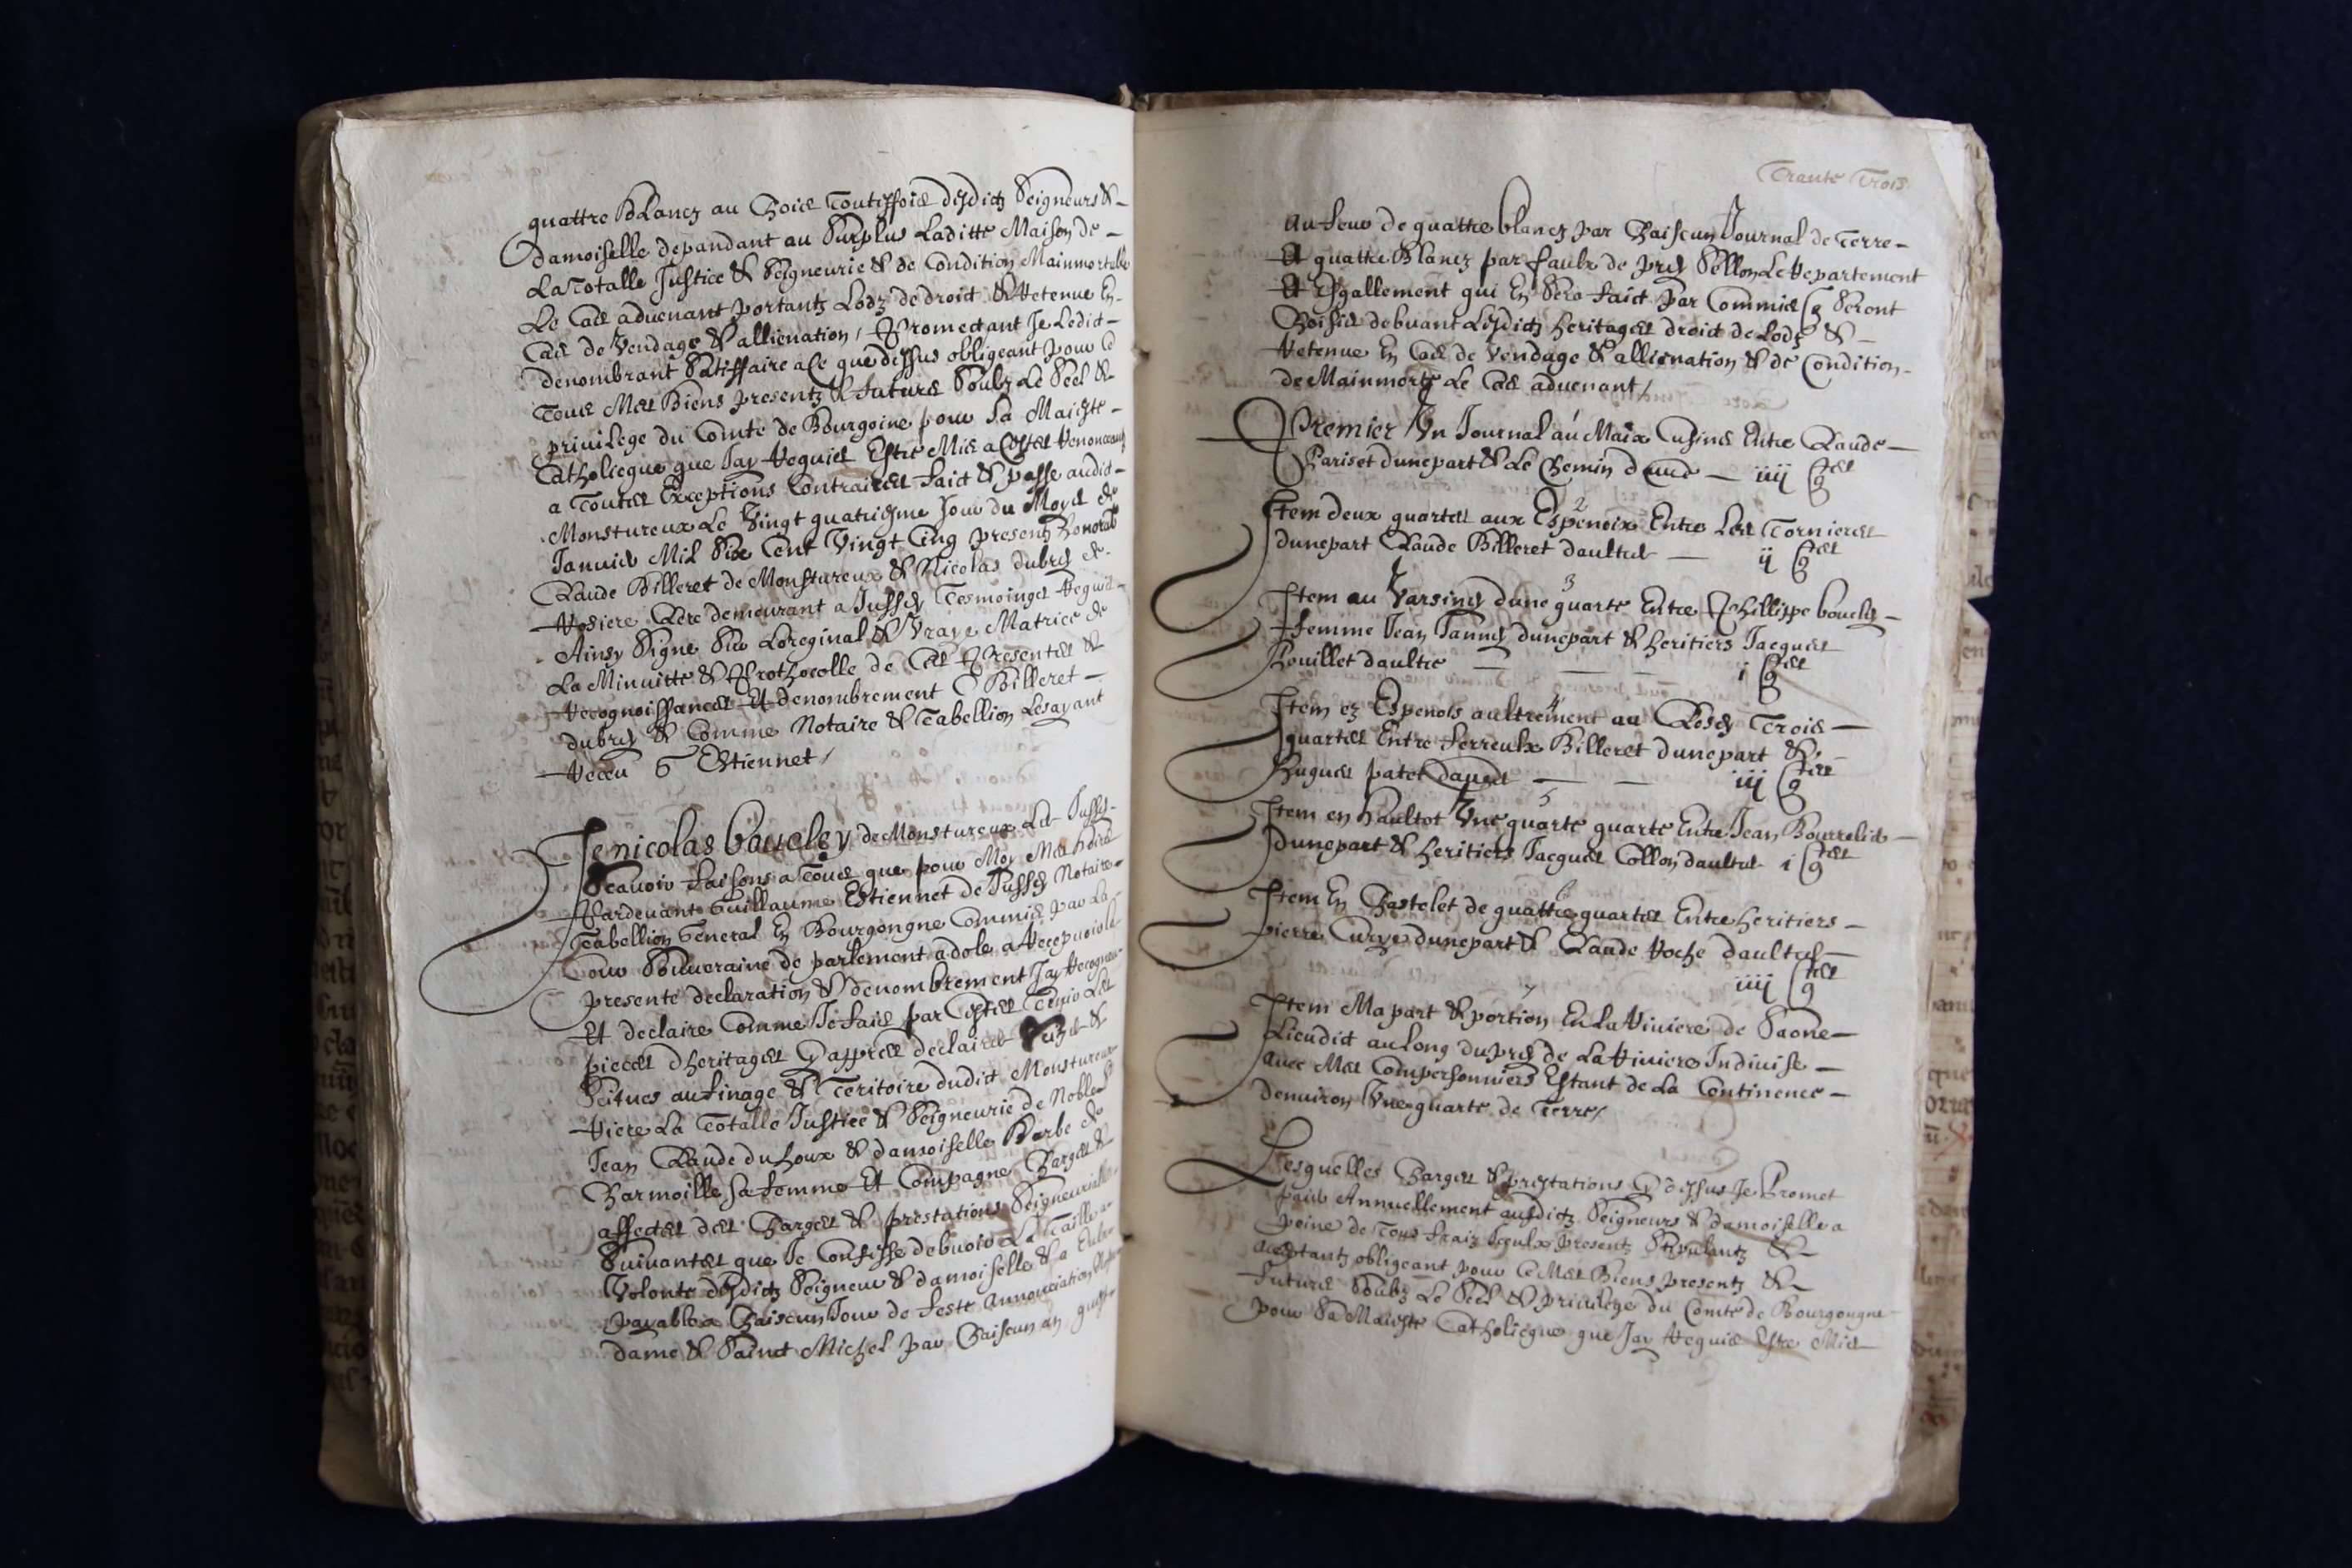 quattre Blancz au Choix touteffois desdictz Seigneurs &
damoiselle depandant au Surplus Laditte Maison de
La Totalle Justice & Seigneurie & de Condition Mainmortable
Le Cas aduenant portantz Lodz de droict & Retenue En
Cas de Vendage & allienation / Promectant Je Ledict
denombrant Satiffaire a Ce que dessus obligeant pour Ce
Tous Mes Biens presentz & futurs Soubz Le Seel &
priuilege du Comte de Bourgoine pour Sa Maieste
Catholicque que Jay Requis Estre Mis a Cestes Renonceant
a Toutes Exceptions Contraires faict & passe audict
Monstureux Le Vingt quatriesme Jour du Moys de
Januier Mil Six Cent Vingt Cinq presentz honorable
Claude Billeret de Monstureux & Nicolas dubrey de
Rosiere Clerc demeurant a Jussey Tesmoinges Requis
Ainsy Signe Sur Loreginal & Vraye Matrice de
La Minuitte & Prothocolle de Ces Presentes &
Recognoissances Et denombrement C Billeret
dubrey & Comme Notaire & Tabellion Lesayant
Receu G Estiennet /
Je nicolas boucley de Monstureux Les Jussey
Scauoir faisons a Tous que pour Moy Mes hoirs
Pardeuant Guillaume Estiennet de Jussey Notaire
Tabellion General En Bourgongne Commis par La
Cour Souueraine de parlement a dole a Recepuoir le
presente declaration & denombrement Jay Recogneu
Et declaire Comme Je fais par Cestes Tenir Les
pieces dheritages Cyappres declairees &
Scitues au finage & Teritoire dudict Monstureux
Riere La Totalle Justice & Seigneurie de Nobles
Jean Claude du houx & damoiselle Barbe de
Charmoille Sa femme Et Compagne Charges &
affectes des Charges & prestations Seigneuriales
Suiuantes que Je Confesse debuoir La Taille a
Volonte desdictz Seigneur & damoiselle & a Eulx
payable a Chaiscun Jour de feste Annonciation
dame & Sainct Michel par Chaiscun an
Trante Trois
au feur de quattre blancz par Chaiscun Journal de Terre
Et quattre Blancz par faulx de prey Sellon Le Repartement
Et Esgallement qui En Sera faict par Commis Seront
Choisis debuant Lesdictz heritages droict de Lodz &
Retenue En Cas de Vendage & allienation & de Condition
de Mainmorte Le Cas aduenant /
Premier Un Journal au Maix Cusine Entre Claude
Pariset dunepart & Le Chemin dautre iiij
2
Item deux quartes aux Espenoix Entre Les Tornieres
dunepart Claude Billeret daultres ij
3
Item au Varsiney dune quarte Entre Phillippe boucley
femme Jean Janney dunepart & heritiers Jacques
Pouillet daultre i
4
Item ez Espenois aultrement au Closey Trois
quartes Entre ferreulx Billeret dunepart &
hugues patet daultres iij
5
Item en haultot Vne quarte quarte Entre Jean Bourrelier
dunepart & heritiers Jacques Collon daultres i
6
Item En Chastelet de quattre quartes Entre heritiers
pierre Curye dunepart & Claude Roche daultres
iiij
7
Item Ma part & portion En La Riuiere de Saone
Lieudict au long du prey de La Riuiere Indiuise
auec Mes Compersonniers Estant de La Continence
denuiron Vne quarte de Terre /
Lesquelles Charges & prestations Cydessus Je Promet
paier Annuellement ausdictz Seigneurs & damoiselle a
peine de Tous fraiz Iceulx presentz Stipulantz &
acceptantz obligeant pour Ce Mes Biens presentz &
futurs Soubz Le Seel & priuilege du Comte de Bourgongne
pour Sa Maieste Catholicque que Jay Requis Estre Mis